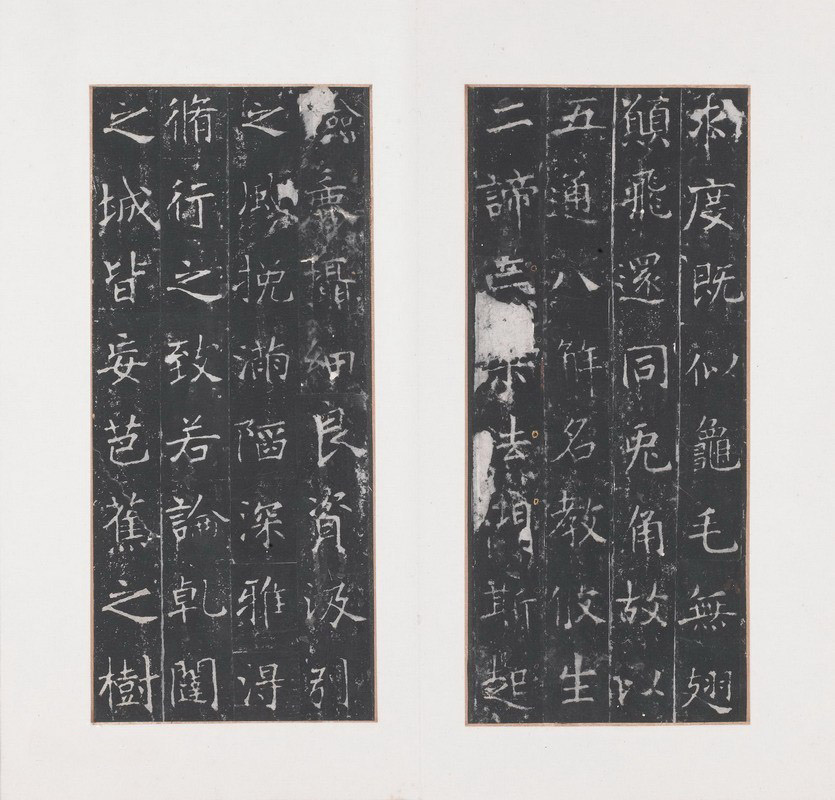 求度既似龜毛無翅
願飛還同兔角故以
五通八解名教攸生
二諦法門斯起
麁攝細良資汲引
之風挽滿陷深雅得
脩行之致若論乹闥
之城皆妄芭蕉之樹